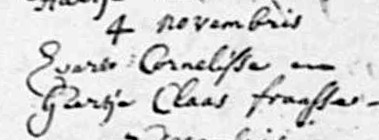 4 novembris
Evert Cornelisse en
Geertje Claas fransse